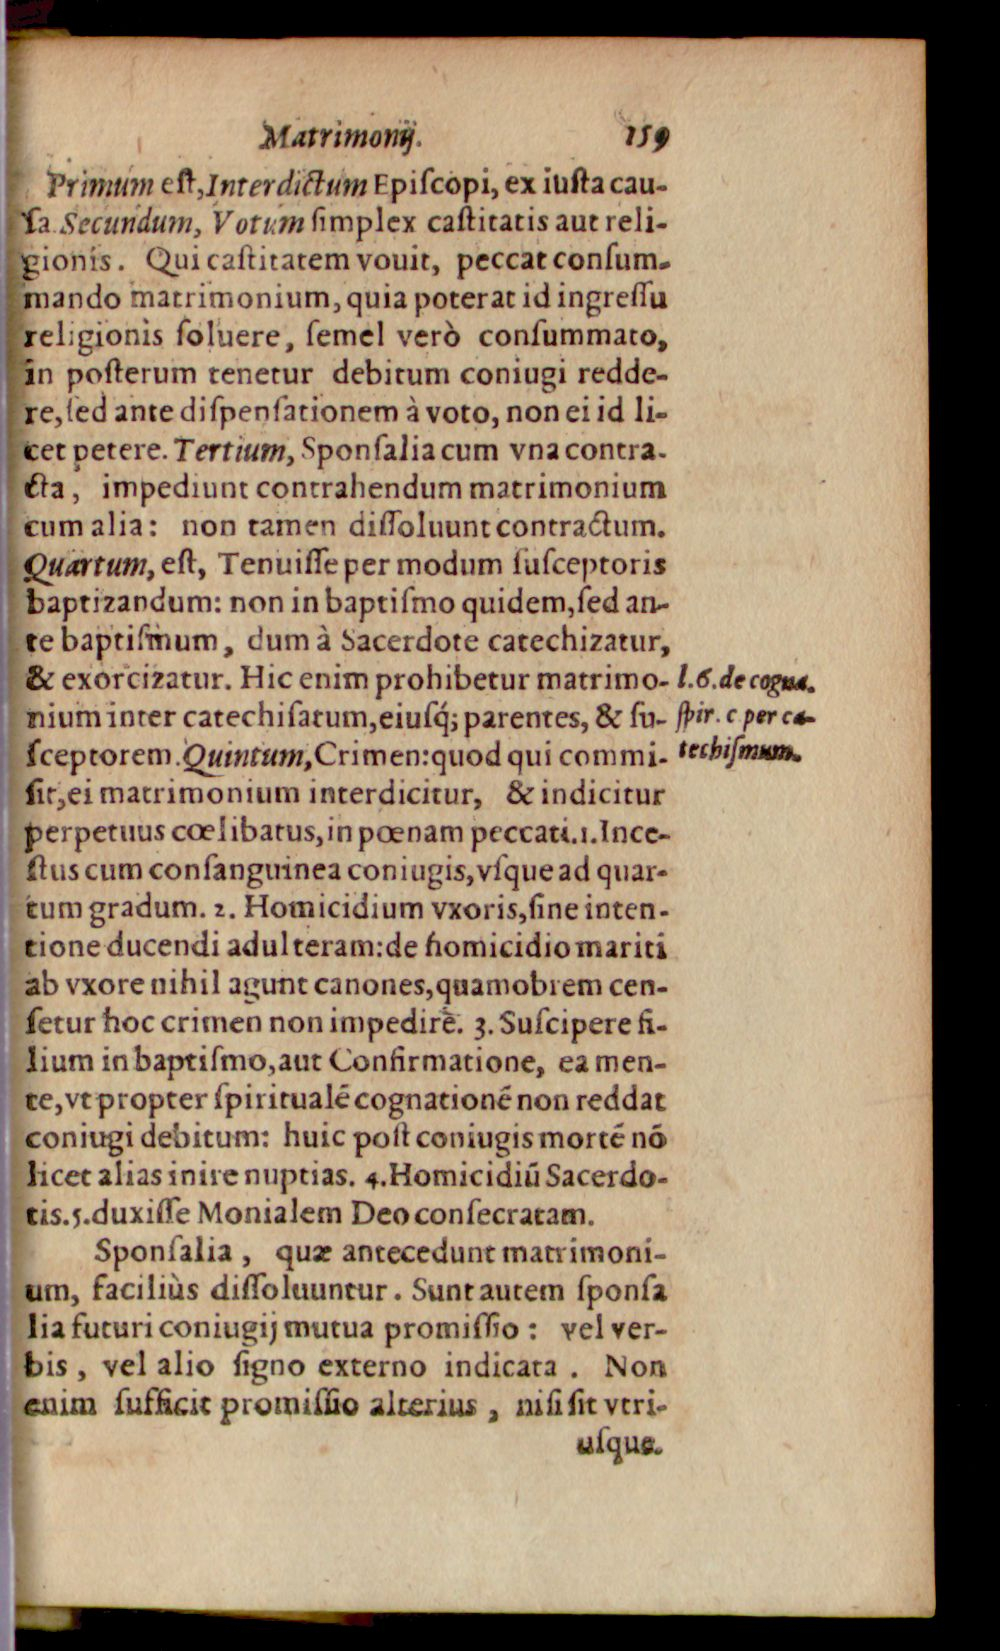 Matrimonij. 159
Primum eſt, Interdictum Epiſcopi, ex iuſta cau-
ſa. Secundum, Votum ſimplex caſtitatis aut reli-
gionis. Qui caſtitatem vouit, peccat conſum-
mando matrimonium, quia poterat id ingreſſu
religionis ſoluere, ſemel verò conſummato,
in poſterum tenetur debitum coniugi redde-
re, ſed ante diſpenſationem à voto, non ei id li-
cet petere. Tertium, Sponſalia cum vna contra-
cta, impediunt contrahendum matrimonium
cum alia: non tamen diſſoluunt contractum.
Quartum, eſt, Tenuiſſe per modum ſuſceptoris
baptizandum: non in baptiſmo quidem, ſed an-
te baptiſmum, dum à Sacerdote catechizatur,
& exorcizatur. Hic enim prohibetur matrimo-
nium inter catechiſatum, eiuſq́; parentes, & ſu-
ſceptorem. Quintum, Crimen: quod qui commi-
ſit, ei matrimonium interdicitur, & indicitur
perpetuus cœlibatus, in pœnam peccati. 1. Ince-
ſtus cum conſanguinea coniugis, vſque ad quar-
tum gradum. 2. Homicidium vxoris, ſine inten-
tione ducendi adulteram: de homicidio mariti
ab vxore nihil agunt canones, quamobrem cen-
ſetur hoc crimen non impedire. 3. Suſcipere fi-
lium in baptiſmo, aut Confirmatione, ea men-
te, vt propter ſpiritualē cognationē non reddat
coniugi debitum: huic poſt coniugis mortē nō
licet alias inire nuptias. 4. Homicidiū Sacerdo-
tis. 5. duxiſſe Monialem Deo conſecratam.
Sponſalia, quæ antecedunt matrimoni-
um, faciliùs diſſoluuntur. Sunt autem ſponſa
lia futuri coniugij mutua promiſſio: vel ver-
bis, vel alio ſigno externo indicata. Non
enim ſufficit promiſſio alterius, niſi ſit vtri-
uſque.
l. 6. de cogna.
ſpir. c per ca-
techiſmum.